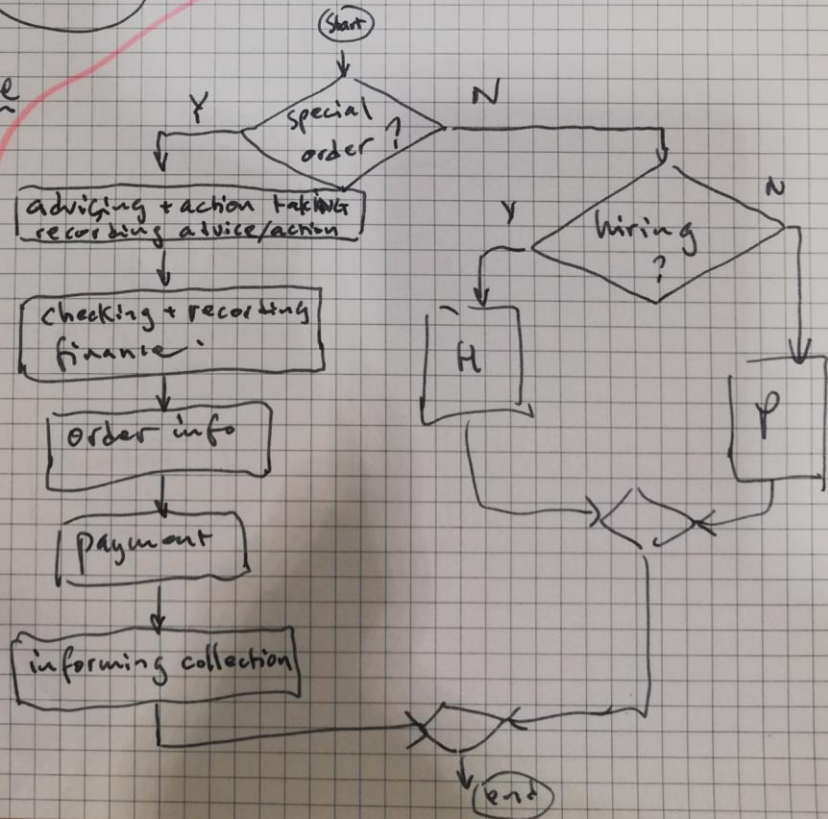 Start
special
order ?
Y
N
advising + action taking
recording advice/action
hiring
?
Y
N
checking + recording
finance
H
P
order info
payment
informing collection
end